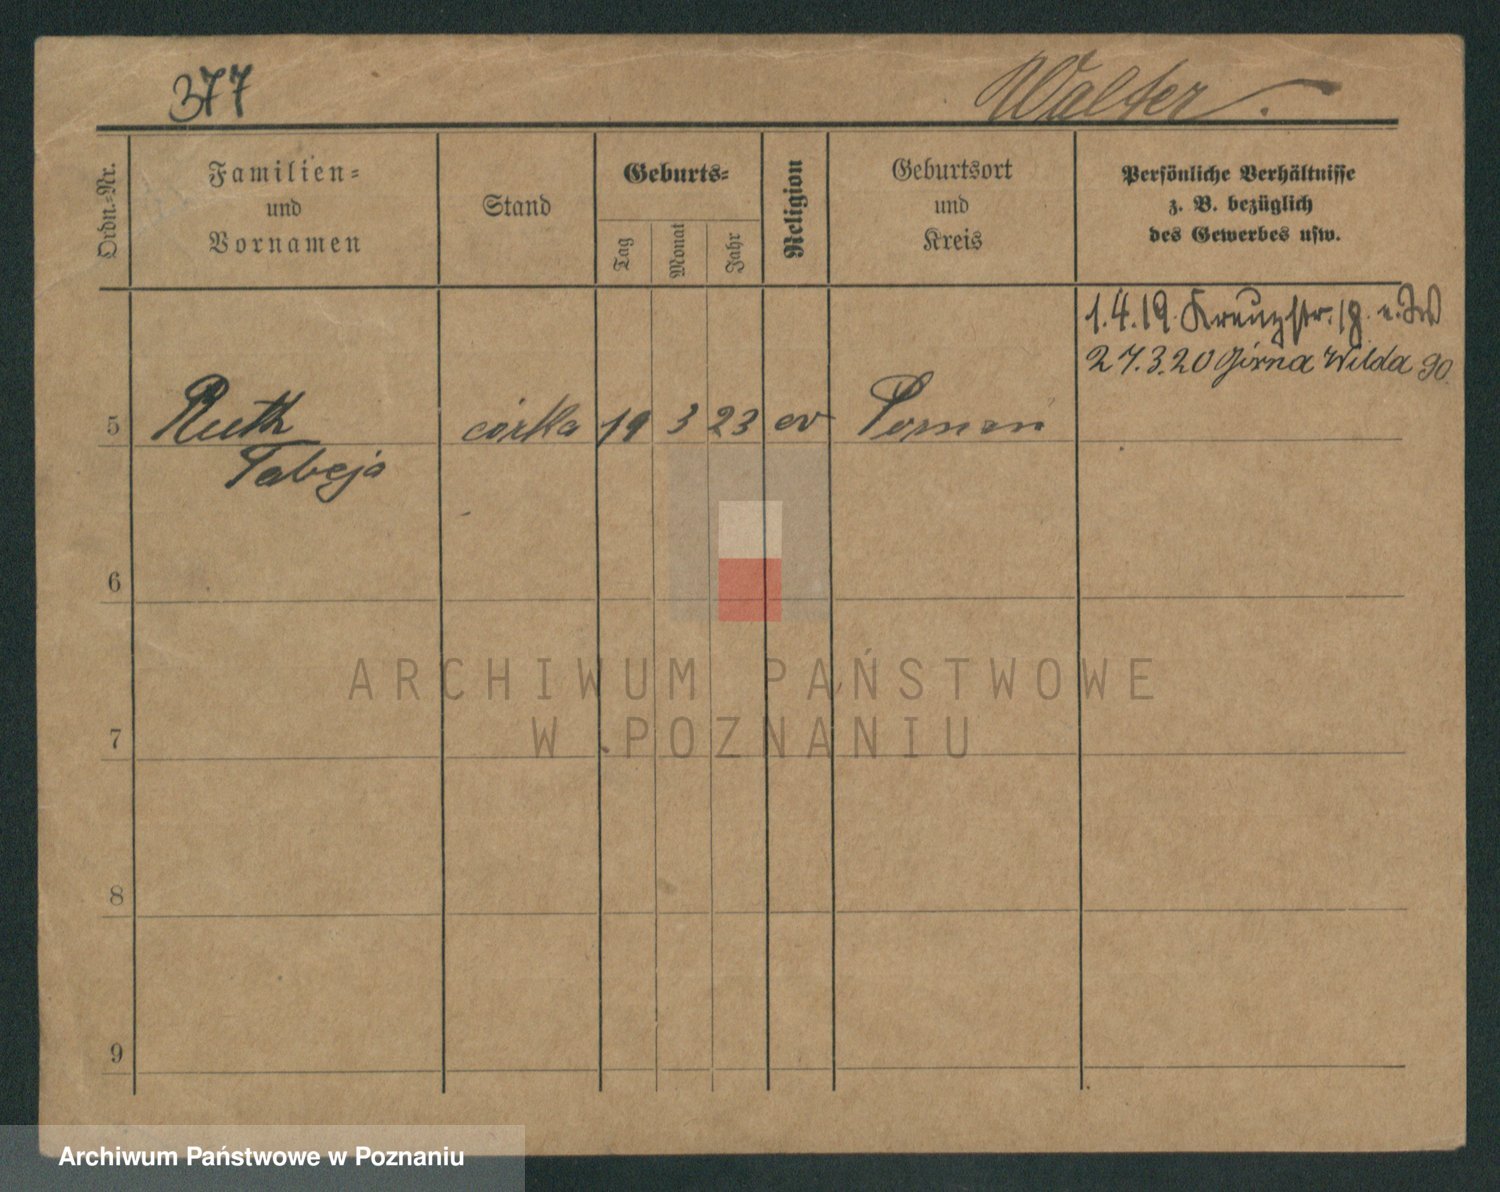 377
Walter.
Ordn.-Nr.
Familien-
und
Vornamen
Stand
Geburts-
Tag
Monat
Jahr
Religion
Geburtsort
und
Kreis
Persönliche Verhältnisse
z. B. bezüglich
des Gewerbes usw.
1.4.19. Kreuzstr. 18.
27.3.20 Górna Wilda 90.
5 Ruth córka 19 3 23 ev Poznań
Tabeja
6
ARCHIWUM PAŃSTWOWE
W POZNANIU
7
8
9
Archiwum Państwowe w Poznaniu